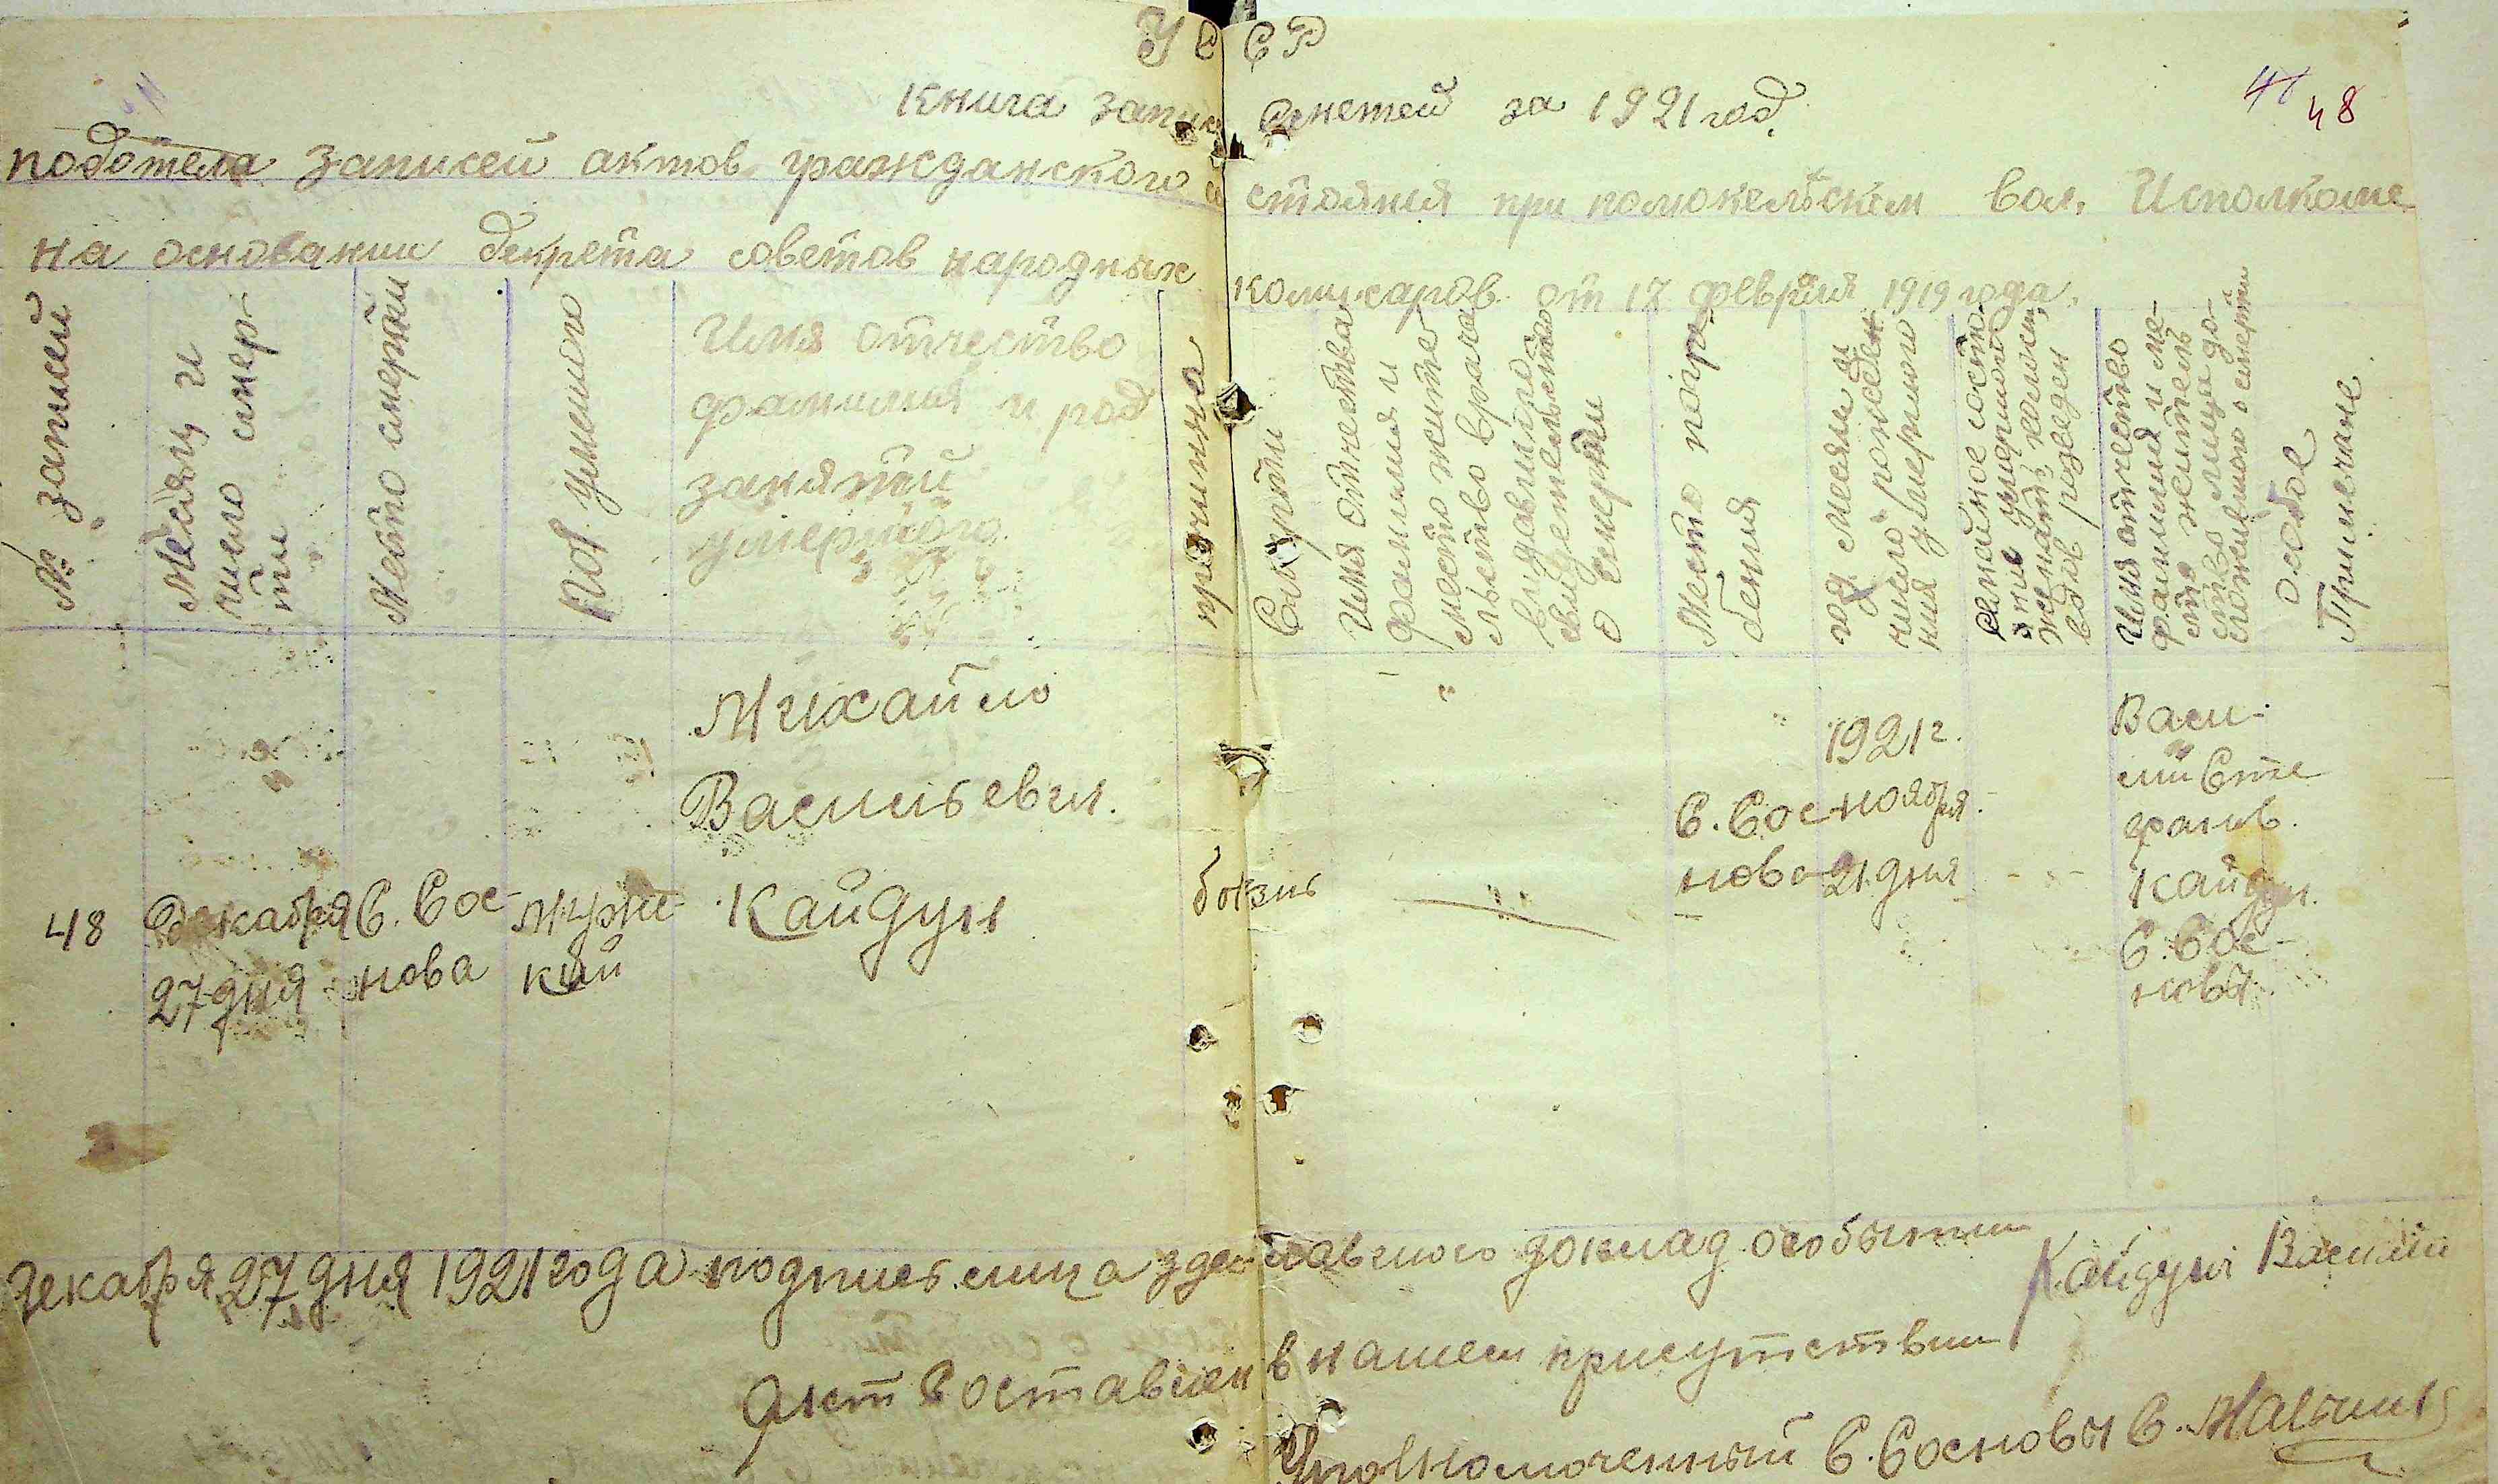 УССР
Книга записи смертей за 1921 год
48
подотела записей актов гражданского состояния при вол. Исполкоме
на основании декрета советов народных комисаров от 17 февраля 1919 года.
№ записи
Месяц и
число смер-
ти
Место смерти
Пол умешого
Имя отчество
фамилия и род
занятий
умершого
причина
Смерти
Имя отчества
фамилия и
место жите
льство врача
видавшего
свидетельство
о смерти
Место погре
бения
год месяц и
число рожден
ния умершого
Имя отчество
фамилия и ме-
сто житель
ство лица до-
ложившого о смерти
Особое
Примечание
48
Декабря
27 дня
С. Сос-
нова
Мужс
кий
Михайло
Васильевич.
Кайдун
болзнь
С. Сос-
нова
1921 г.
ноября
21 дня
Васи-
лий Сте
фанов.
Кайдун.
С. Сос-
нова
Декабря 27 дня 1921 года подпись лица зделавшого доклад особытии Кайдун Василий
Акт Составлен в нашем присутствии
Уполномоченный С. Сосновы С.